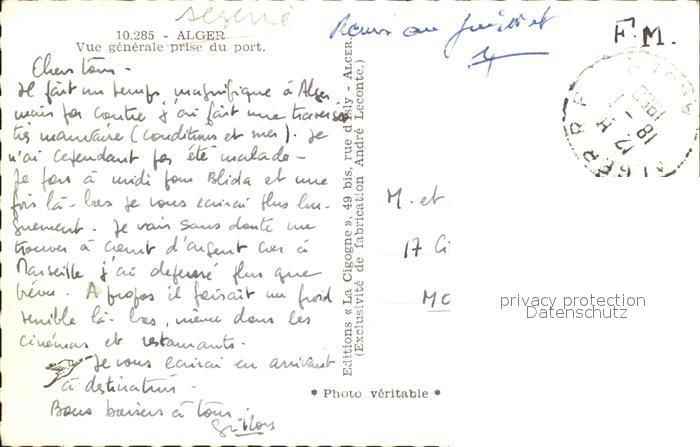 Algérie
10.285 - ALGER
Vue générale prise du port.
Chers tous -
Il fait un temps magnifique à Alger
mais par contre j'ai fait une traversée
très mauvaise (conditions et mer). Je
n'ai cependant pas été malade -
Je pars à midi pour Blida et une
fois là-bas je vous écrirai plus lon-
guement. Je vais sans doute me
trouver à court d'argent car à
Marseille j'ai dépensé plus que
prévu. A propos il faisait un froid
terrible là-bas, même dans les
cinémas et restaurants.
Je vous écrirai en arrivant
à destination.
Bons baisers à tous.
Editions « La Cigogne », 49 bis, rue d'Isly - ALGER
(Exclusivité de fabrication André Leconte.)
* Photo véritable *
F.M.
ALGER R.P.
17 H
18 - 1
M. et
17 Ci
MO
privacy protection
Datenschutz